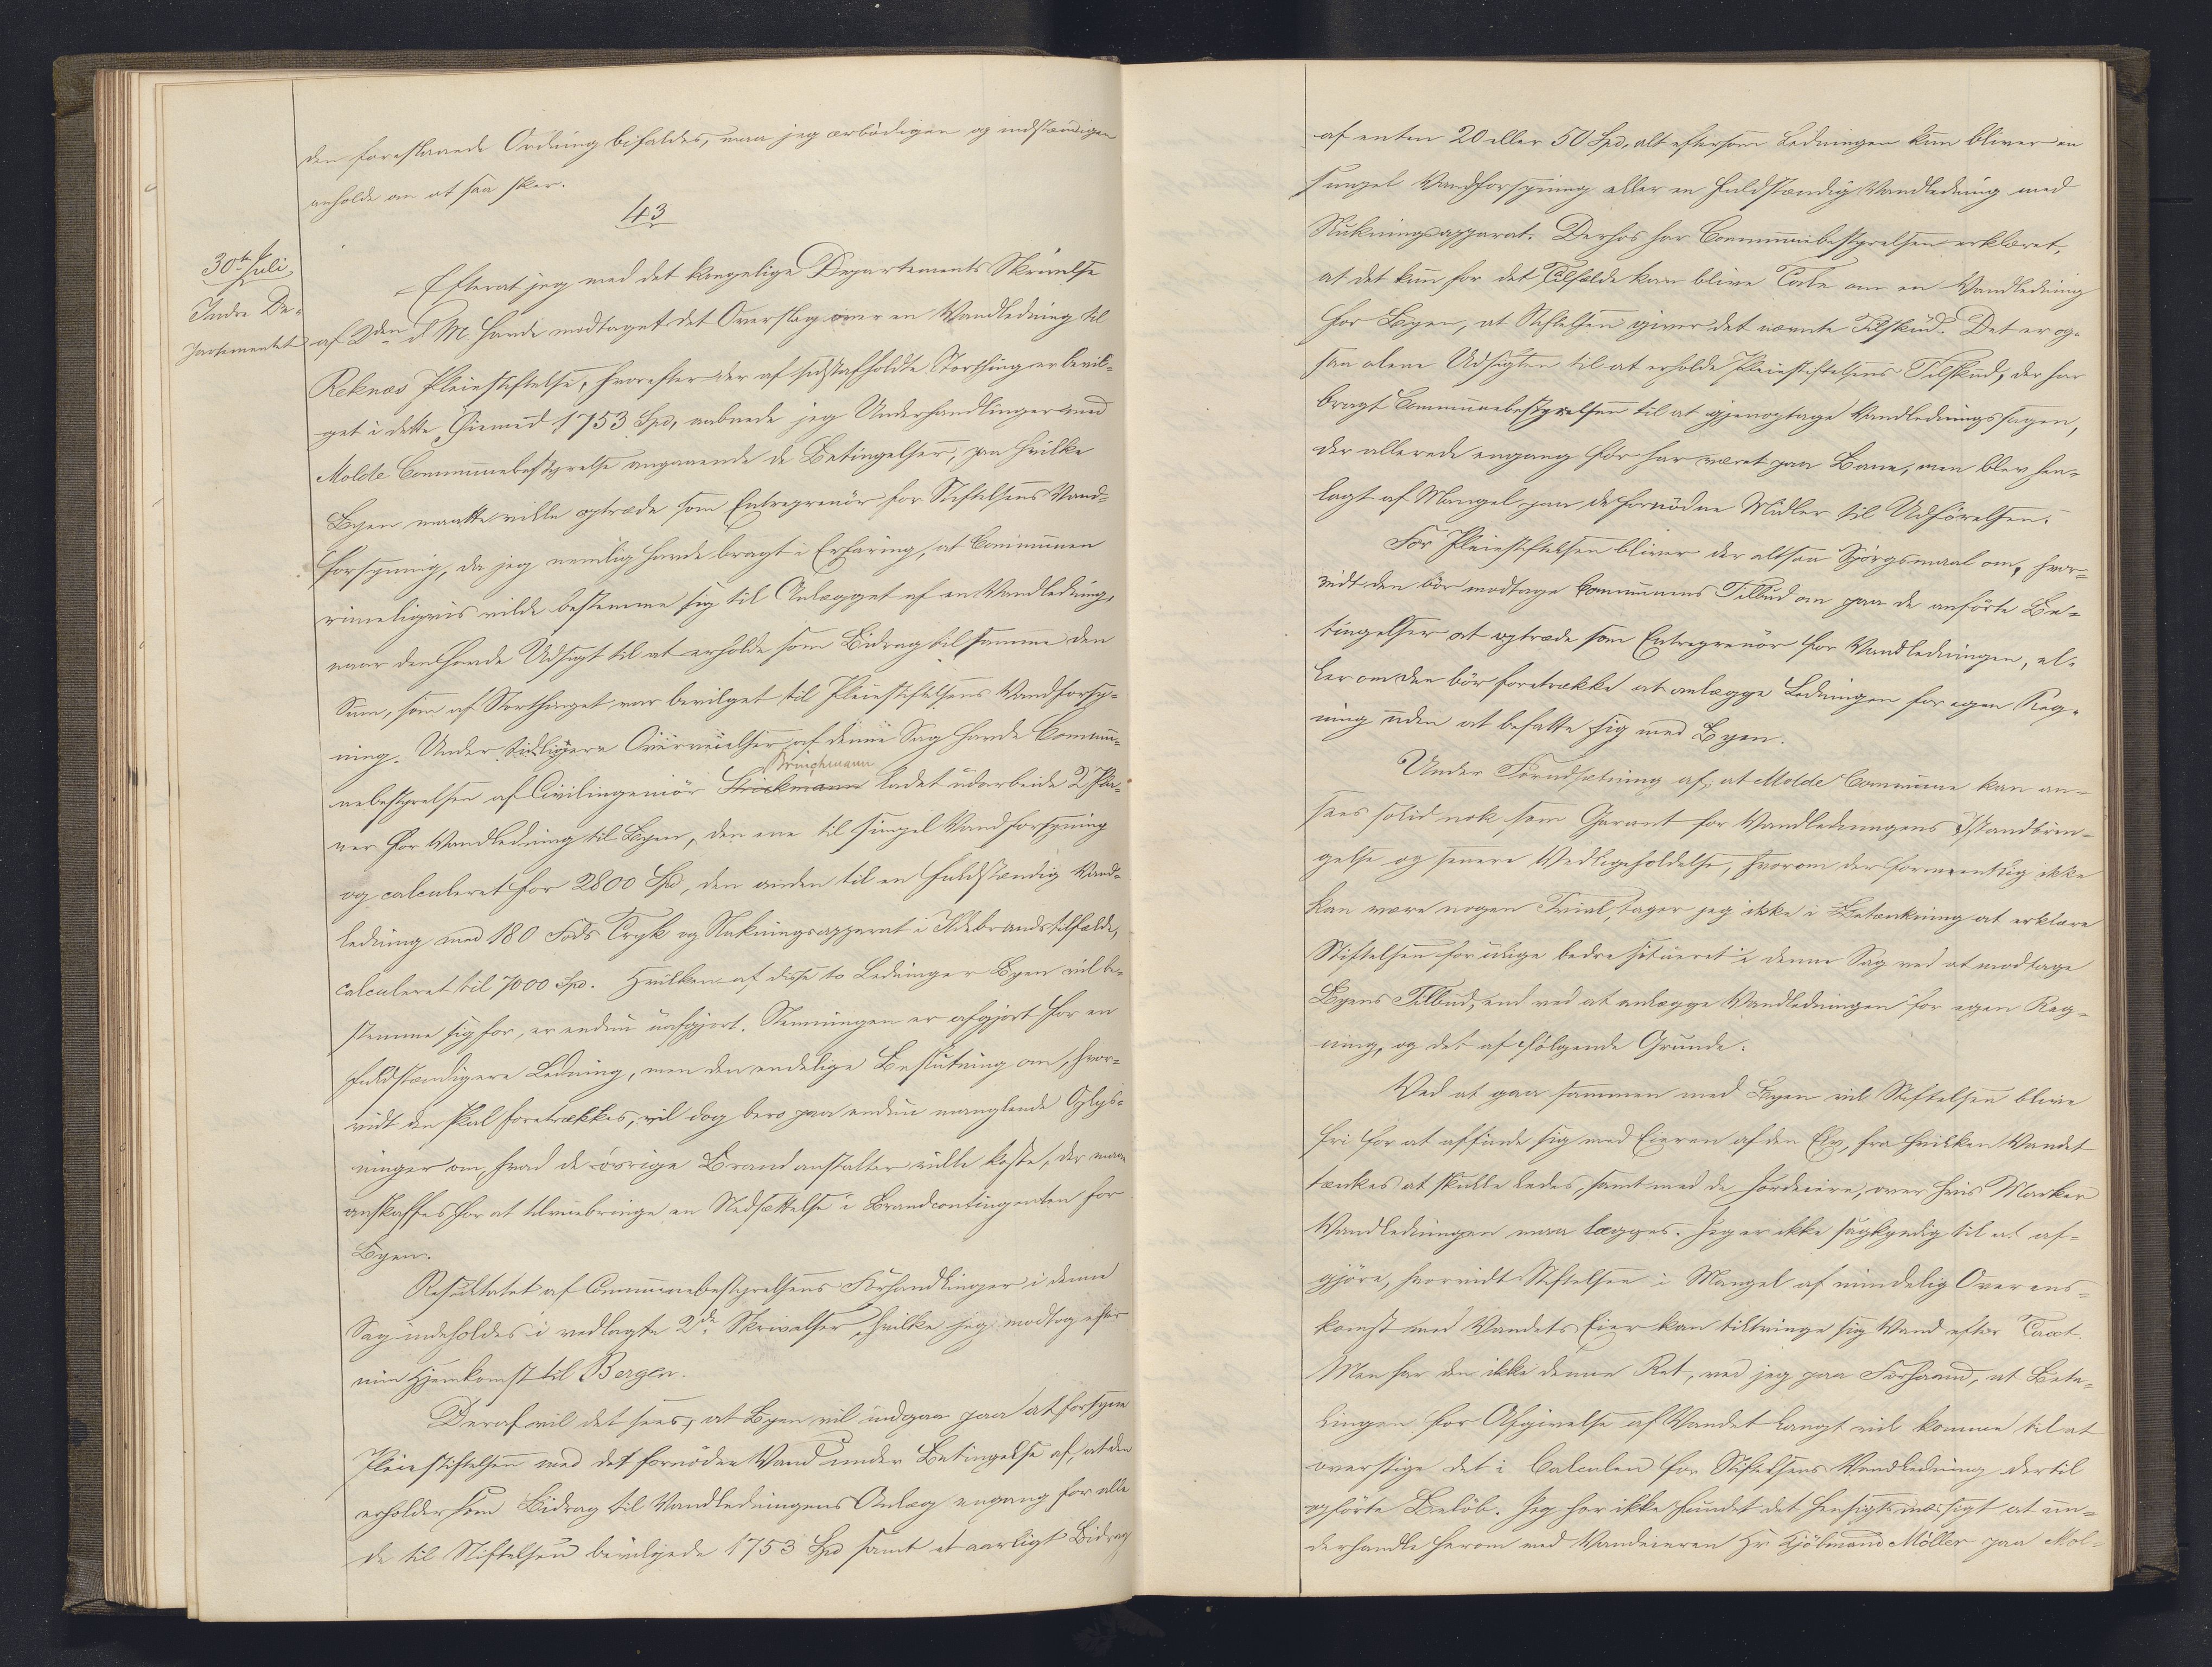 den foreslaaede Ordning bifaldes, maa jeg ærbödigen og indstændigen
anholde om at saa sker.
43
30te Juli.
Indre De-
partementet
Efterat jeg med det kongelige Departements Skrivelse
af 2den d. M. havde modtaget det Overslag over en Vandledning til
Reknæs Pleiestiftelse, hvorefter der af sidstafholdte Storthing er bevil-
get i dette Öiemed 1753 Spd, aabnede jeg Underhandlinger med
Molde Communebestyrelse angaaende de Betingelser, paa hvilke
Byen maatte ville optræde som Entreprenör for Stiftelsens Vand-
forsyning, da jeg nemlig havde bragt i Erfaring, at Communen
rimeligvis vilde bestemme sig til Anlægget af en Vandledning,
naar den havde Udsigt til at erholde som Bidrag til samme den
Sum, som af Storthinget var bevilget til Pleiestiftelsens Vandforsy-
ning. Under tidligere Overveielser af denne Sag havde Commu-
Bruchmann
nebestyrelsen af Civilingeniör Ströckmann ladet udarbeide 2 Pla-
ner for Vandledning til Byen, den ene til simpel Vandforsyning
og calculeret for 2800 Spd, den anden til en fuldstændig Vand-
ledning med 180 Fods Tryk og Slukningsapparat i Ildebrandstilfælde,
calculeret til 7000 Spd. Hvilken af disse to Ledninger Byen vil be-
stemme sig for, er endnu uafgjort. Stemningen er afgjort for en
fuldstændigere Ledning, men den endelige Beslutning om, hvor-
vidt den skal foretrækkes, vil dog bero paa endnu manglende Oplys-
ninger om, hvad de övrige Brandanstalter ville koste, der maa
anskaffes for at tilveiebringe en Nedsættelse i Brandcontingenten for
Byen.
Resultatet af Communebestyrelsens Forhandlinger i denne
Sag indeholdes i vedlagte 2de Skrivelser, hvilke jeg modtog efter
min Hjemkomst til Bergen.
Deraf vil det sees, at Byen vil indgaa paa at forsyne
Pleiestiftelsen med det fornödne Vand under Betingelse af, at den
erholder som Bidrag til Vandledningens Anlæg engang for alle
de til Stiftelsen bevilgede 1753 Spd samt et aarligt Bidrag
af enten 20 eller 50 Spd, alt eftersom Ledningen kun bliver en
simpel Vandforsyning eller en fuldstændig Vandledning med
Slukningsapparat. Derhos har Communebestyrelsen erklæret,
at det kun for det Tilfælde kan blive Tale om en Vandledning
for Byen, at Stiftelsen giver det nævnte Tilskud. Det er og-
saa alene Udsigten til at erholde Pleiestiftelsens Tilskud, der har
bragt Communebestyrelsen til at gjenoptage Vandledningssagen,
der allerede engang för har været paa Bane, men blev hen-
lagt af Mangel paa de fornödne Midler til Udförelsen.
For Pleiestiftelsen bliver der altsaa Spörgsmaal om, hvor-
vidt den bör modtage Communens Tilbud om paa de anförte Be-
tingelser at optræde som Entreprenör for Vandledningen, el-
ler om den bör foretrække at anlægge Ledningen for egen Reg-
ning uden at befatte sig med Byen.
Under Forudsætning af, at Molde Commune kan an-
sees solid nok som Garant for Vandledningens Istandbrin-
gelse og senere Vedligeholdelse, hvorom der formeentlig ikke
kan være nogen Tvivl, tager jeg ikke i Betænkning at erklære
Stiftelsen for ulige bedre situeret i denne Sag ved at modtage
Byens Tilbud, end ved at anlægge Vandledningen for egen Reg-
ning, og det af fölgende Grunde:
Ved at gaa sammen med Byen vil Stiftelsen blive
fri for at affinde sig med Eieren af den Elv, fra hvilken Vandet
tænkes at skulle ledes, samt med de Jordeiere, over hvis Marker
Vandledningen maa lægges. Jeg er ikke sagkyndig til at af-
gjöre, hvorvidt Stiftelsen i Mangel af mindelig Overens-
komst med Vandets Eier kan tiltvinge sig Vand efter Taxt.
Men har den ikke denne Ret, ved jeg paa Forhaand, at Beta-
lingen for Afgivelse af Vandet langt vil komme til at
overstige det i Calculen for Stiftelsens Vandledning dertil
opförte Belöb. Jeg har ikke fundet det hensigtsmæssigt at un-
derhandle herom med Vandeieren Hr Kjöbmand Möller paa Mol-